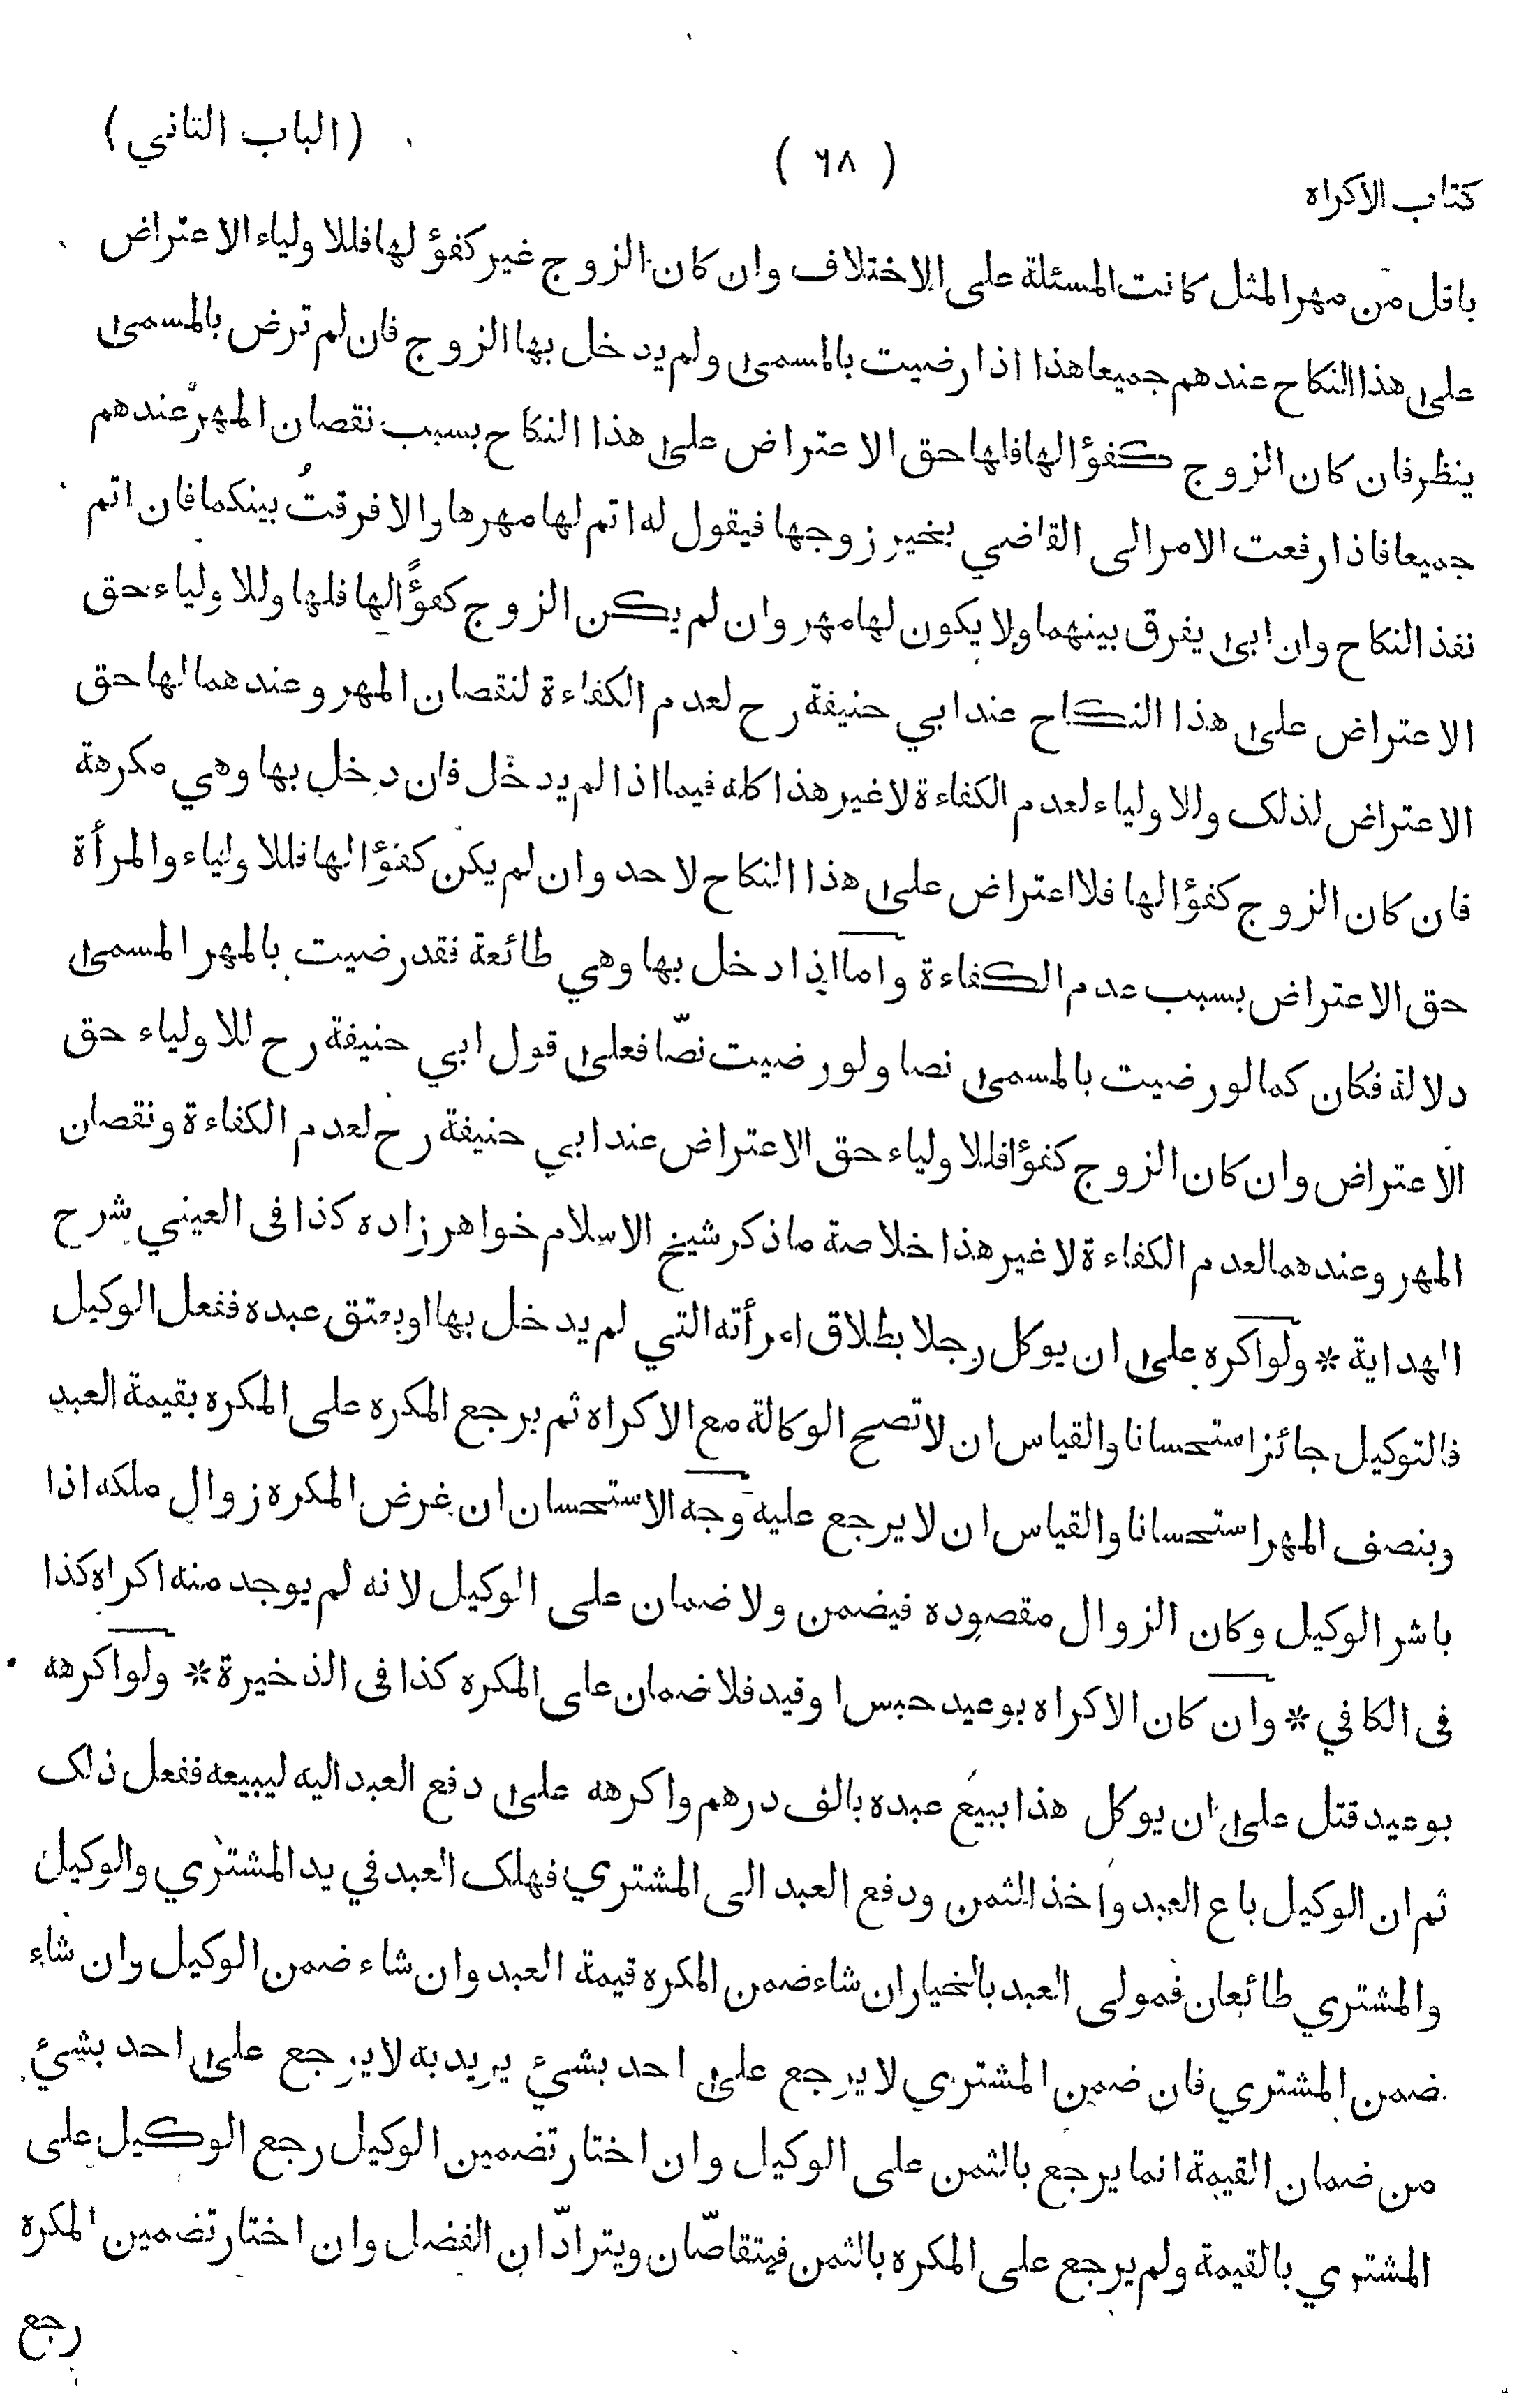 كتاب الاكراه ( ٦٨ ) (الباب الثاني)
باقل من مهر المثل كانت المسئلة على الاختلاف وان كان الزوج غير كفؤ لها فللاولياء الاعتراض
على هذا النكاح عندهم جميعا هذا اذا رضيت بالمسمى ولم يدخل بها الزوج فان لم ترض بالمسمى
ينظر فان كان الزوج كفؤا لها فلها حق الاعتراض على هذا النكاح بسبب نقصان المهر عندهم
جميعا فاذا رفعت الامر الى القاضي يخير زوجها فيقول له اتم لها مهرها والا فرقتُ بينكما فان اتم
نفذ النكاح وان ابى يفرق بينهما ولا يكون لها مهر وان لم يكن الزوج كفؤًا لها فلها وللاولياء حق
الاعتراض على هذا النكاح عند ابي حنيفة رح لعدم الكفاءة لنقصان المهر وعندهما لها حق
الاعتراض لذلك وللاولياء لعدم الكفاءة لا غير هذا كله فيما اذا لم يدخل فان دخل بها وهي مكرهة
فان كان الزوج كفؤا لها فلا اعتراض على هذا النكاح لاحد وان لم يكن كفؤا لها فللاولياء والمرأة
حق الاعتراض بسبب عدم الكفاءة واما اذا دخل بها وهي طائعة فقد رضيت بالمهر المسمى
دلالة فكان كما لو رضيت بالمسمى نصا ولو رضيت نصّا فعلى قول ابي حنيفة رح للاولياء حق
الاعتراض وان كان الزوج كفؤا فللاولياء حق الاعتراض عند ابي حنيفة رح لعدم الكفاءة ونقصان
المهر وعندهما لعدم الكفاءة لا غير هذا خلاصة ما ذكر شيخ الاسلام خواهر زاده كذا فى العيني شرح
الهداية * ولو اكره على ان يوكل رجلا بطلاق امرأته التي لم يدخل بها او بعتق عبده ففعل الوكيل
فالتوكيل جائز استحسانا والقياس ان لا تصح الوكالة مع الاكراه ثم يرجع المكره على المكره بقيمة العبد
وبنصف المهر استحسانا والقياس ان لا يرجع عليه وجه الاستحسان ان غرض المكره زوال ملكه اذا
باشر الوكيل وكان الزوال مقصوده فيضمن ولا ضمان على الوكيل لانه لم يوجد منه اكراه كذا
فى الكافي * وان كان الاكراه بوعيد حبس او قيد فلا ضمان على المكره كذا فى الذخيرة * ولو اكرهه
بوعيد قتل على ان يوكل هذا ببيع عبده بالف درهم واكرهه على دفع العبد اليه ليبيعه ففعل ذلك
ثم ان الوكيل باع العبد واخذ الثمن ودفع العبد الى المشتري فهلك العبد في يد المشتري والوكيل
والمشتري طائعان فمولى العبد بالخيار ان شاء ضمن المكره قيمة العبد وان شاء ضمن الوكيل وان شاء
ضمن المشتري فان ضمن المشتري لا يرجع على احد بشئ يريد به لا يرجع على احد بشئ
من ضمان القيمة انما يرجع بالثمن على الوكيل وان اختار تضمين الوكيل رجع الوكيل على
المشتري بالقيمة ولم يرجع على المكره بالثمن فيتقاصّان ويترادّان الفضل وان اختار تضمين المكره
رجع